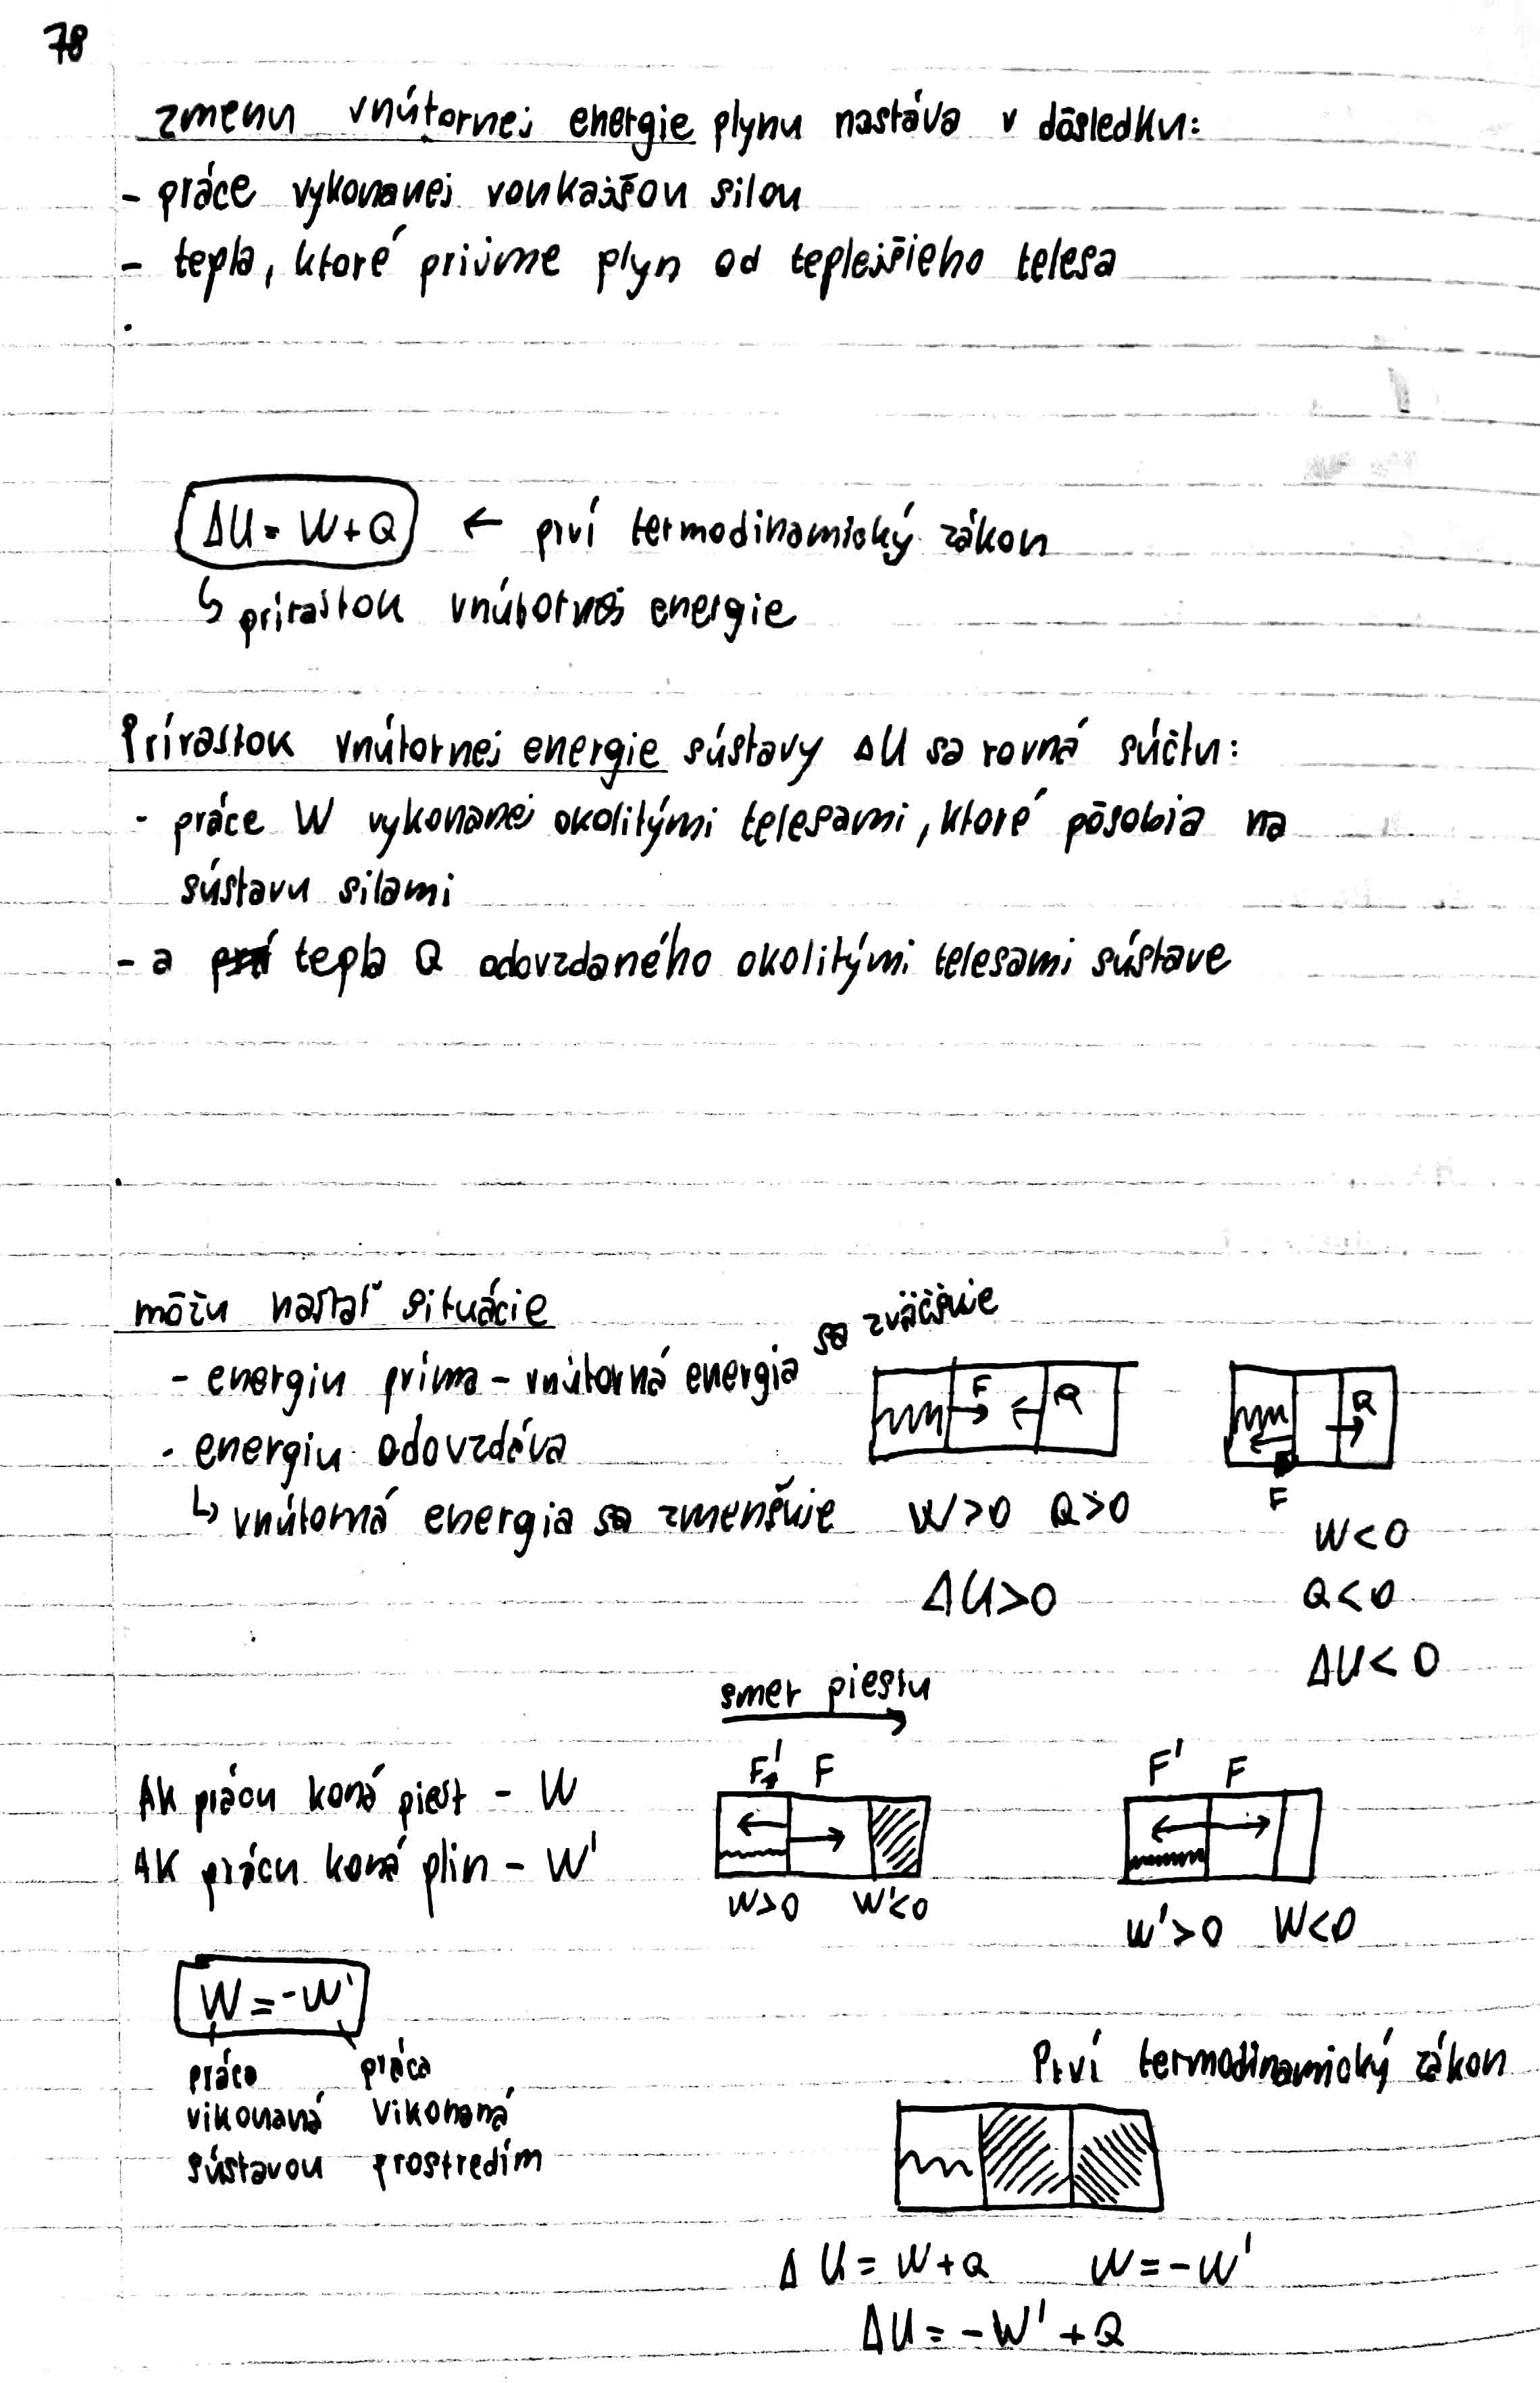 78
zmenu vnútornej energie plynu nastáva v dôsledku:
- práce vykonanej vonkajšou silou
- tepla, ktoré prijme plyn od teplejšieho telesa
ΔU = W + Q ← prví termodinamický zákon
↳ prírastok vnútornej energie
Prírastok vnútornej energie sústavy ΔU sa rovná súčtu:
- práce W vykonanej okolitými telesami, ktoré pôsobia na
sústavu silami
- a tepla Q odovzdaného okolitými telesami sústave
môžu nastať situácie
- energiu príma - vnútorná energia sa zväčšuje
- energiu odovzdáva
↳ vnútorná energia sa zmenšuje
F Q
W>0 Q>0
ΔU>0
Q
F
W<0
Q<0
ΔU<0
smer piestu
AK prácu koná piest - W
AK prácu koná plin - W'
F' F
W>0 W'<0
F' F
W'>0 W<0
W = -W'
práca vikonaná sústavou
práca vikonaná prostredím
Prví termodinamický zákon
ΔU = W + Q W = -W'
ΔU = -W' + Q